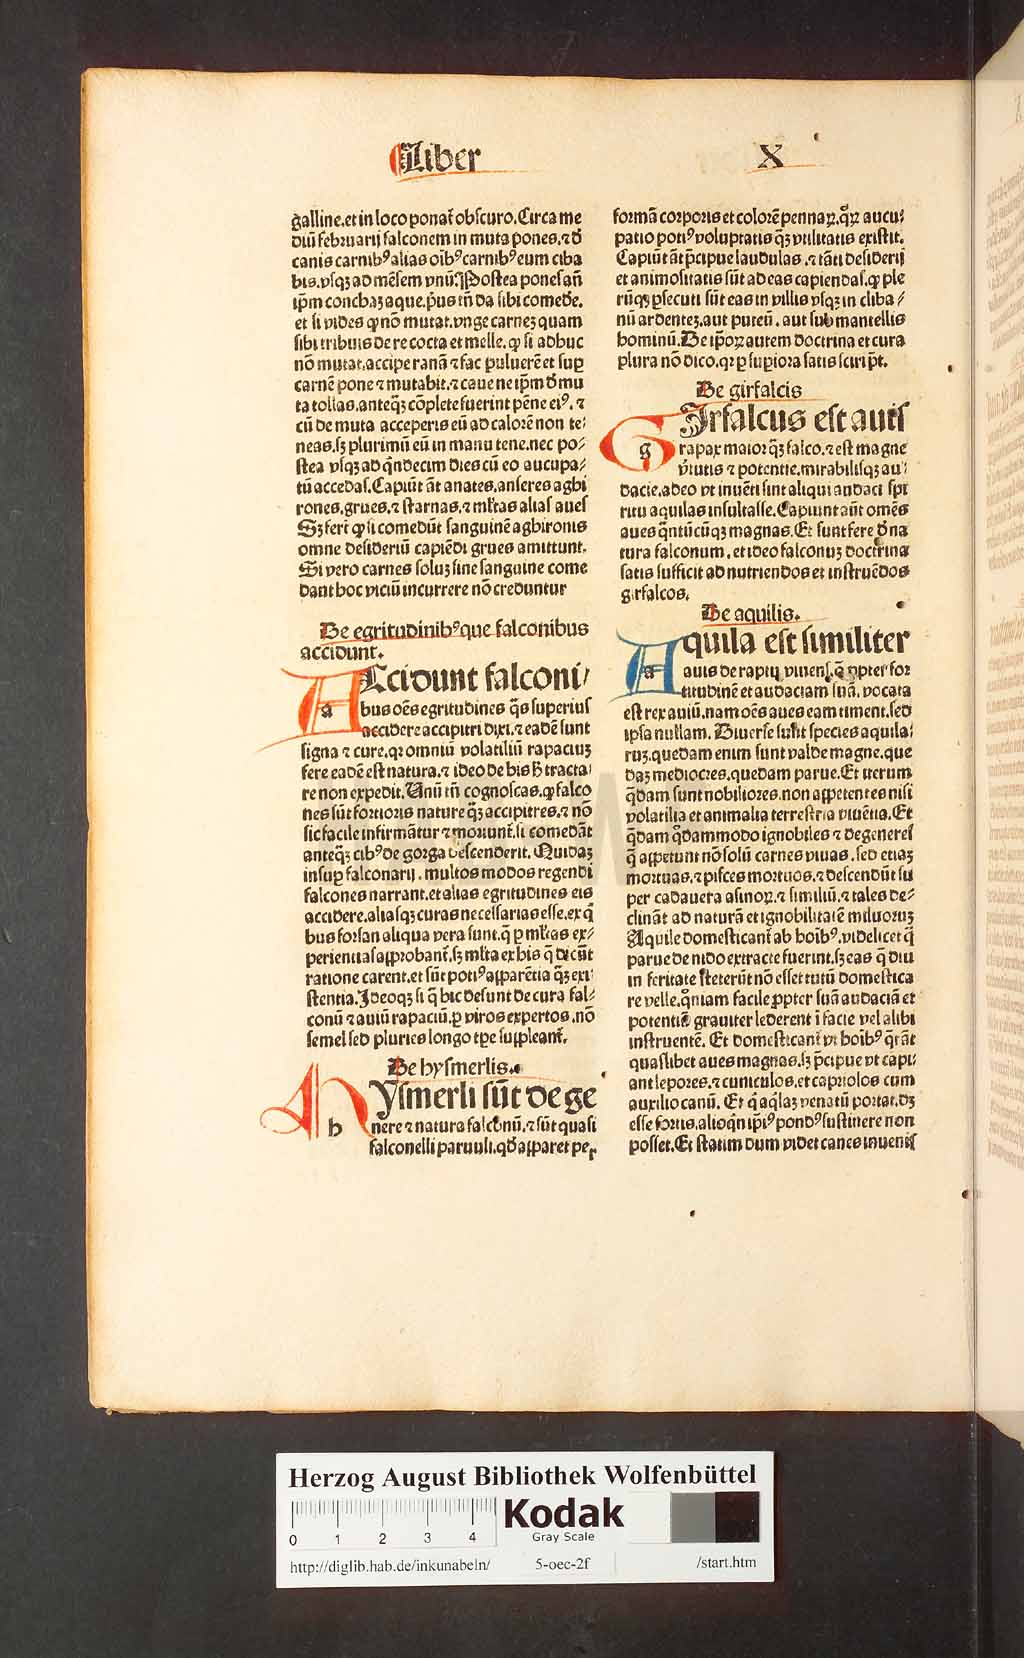 Liber
X
galline.et in loco ponat̃ obscuro.Circa me
diũ februarij falconem in muta pones.⁊ đ
canis carnibꝰ alias oĩbꝰ carnibꝰ eum ciba
bis.vsqꝫ ad mẽsem vnũ. Postea pones añ
ip̃m conchaꝫ aque.p̃us tñ da sibi comede.
et si vides ꝙ nõ mutat.vnge carneꝫ quam
sibi tribuis de re cocta et melle.ꝙ si adhuc
nõ mutat.accipe ranã ⁊ fac puluerẽ et suꝑ
carnẽ pone ⁊ mutabit.⁊ caue ne ip̃m đ mu
ta tollas.anteqꝫ cõplete fuerint pẽne eiꝰ. ⁊
cũ de muta acceperis eũ ad calorẽ non te⸗
neas.sꝫ plurimũ eũ in manu tene.nec po⸗
stea vsqꝫ ad q̃ndecim dies cũ eo aucupa⸗
tũ accedas.Capiũt ãt anates.anseres aghi
rones.grues.⁊ starnas.⁊ ml̃tas alias aues
Sꝫ fert̃ ꝙ si comedũt sanguinẽ aghironis
omne desideriũ capiẽdi grues amittunt.
Si vero carnes soluꝫ sine sanguine come
dant hoc viciũ incurrere nõ creduntur
De egritudinibꝰ que falconibus
accidunt.
a
ACcidunt falconi⸗
bus oẽs egritudines q̃s superius
accidere accipitri dixi.⁊ eadẽ sunt
signa ⁊ cure.qꝛ omniũ volatiliũ rapaciuꝫ
fere eadẽ est natura.⁊ ideo de his h̃ tracta⸗
re non expedit.Unũ tñ cognoscas.ꝙ falco
nes sũt fortioris nature qꝫ accipitres.⁊ nõ
sic facile infirmãtur ⁊ moriunt̃.si comedãt
anteqꝫ cibꝰ de gorga descenderit. Quidaꝫ
insuꝑ falconarij.multos modos regendi
falcones narrant.et alias egritudines eis
accidere.aliasqꝫ curas necessarias esse.ex q̃
bus forsan aliqua vera sunt.q̃ ꝑ ml̃tas ex⸗
perientias approbant̃.sꝫ ml̃ta ex his q̃ dicũt
ratione carent.et sũt potiꝰ apparẽtia qꝫ exi⸗
stentia.Ideoqꝫ si q̃ hic desunt de cura fal⸗
conũ ⁊ auiũ rapaciũ.ꝑ viros expertos.nõ
semel sed pluries longo tꝑe suppleant̃.
De hysmerlis.
h
HYsmerli sũt de ge
nere ⁊ natura falconũ.⁊ sũt quasi
falconelli paruuli.qđ apparet per
formã corporis et colorẽ pennaꝝ.qꝛ aucu⸗
patio potiꝰ voluptatis qꝫ vtilitatis existit.
Capiũt ãt p̃cipue laudulas.⁊ tãti desiderij
et animositatis sũt ad eas capiendas.ꝙ ple
rũqꝫ ꝓsecuti sũt eas in villis vsqꝫ in cliba⸗
nũ ardenteꝫ.aut puteũ.aut sub mantellis
hominũ.De ip̃oꝝ autem doctrina et cura
plura nõ dico.qꝛ ꝑ supiora satis sciri pñt.
De girfalcis
g
GIrfalcus est auis
rapax maior qꝫ falco.⁊ est magne
ṽtutis ⁊ potentie.mirabilisqꝫ au⸗
dacie.adeo vt inuẽti sint aliqui audaci spi
ritu aquilas insultasse.Capiunt aũt omẽs
aues q̃ntũcũqꝫ magnas. Et sunt fere đ na
tura falconum.et ideo falconuꝫ doctrina
satis sufficit ad nutriendos et instruẽdos
girfalcos.
De aquilis.
a
AQuila est similiter
auis de raptu viuens.q̃ ꝓpter for
titudinẽ et audaciam suã.vocata
est rex auiũ.nam oẽs aues eam timent.sed
ipsa nullam. Diuerse sunt species aquila⸗
ruꝫ.quedam enim sunt valde magne.que
daꝫ mediocres.quedam parue.Et iterum
q̃dam sunt nobiliores.non appetentes nisi
volatilia et animalia terrestria viuẽtia.Et
q̃dam qđammodo ignobiles ⁊ degeneres
q̃ appetunt nõ solũ carnes viuas.sed etiaꝫ
mortuas.⁊ pisces mortuos.⁊ descendũt su
per cadauera asinoꝝ.⁊ similiũ.⁊ tales de⸗
clinãt ad naturã et ignobilitatẽ miluoruꝫ
Aquile domesticant̃ ab hoĩbꝰ.videlicet q̃
parue de nido extracte fuerint.sꝫ eas q̃ diu
in feritate steterũt nõ esset tutũ domestica
re velle.qm̃niam facile ꝓpter suã audaciã et
potentiã grauiter lederent ĩ facie vel alibi
instruentẽ. Et domesticant̃ vt hoĩbꝰ q̃rãt
quaslibet aues magnas.sꝫ p̃cipue vt capi⸗
ant lepores.⁊ cuniculos.et capriolos cum
auxilio canũ. Et q̃ aq̃laꝫ venatũ portat.dꝫ
esse fortis.alioqñ ip̃iꝰ pondꝰ sustinere non
posset.Et statim dum videt canes inuenis
Herzog August Bibliothek Wolfenbüttel
0 1 2 3 4
Kodak
Gray Scale
http://diglib.hab.de/inkunabeln/ 5-oec-2f /start.htm